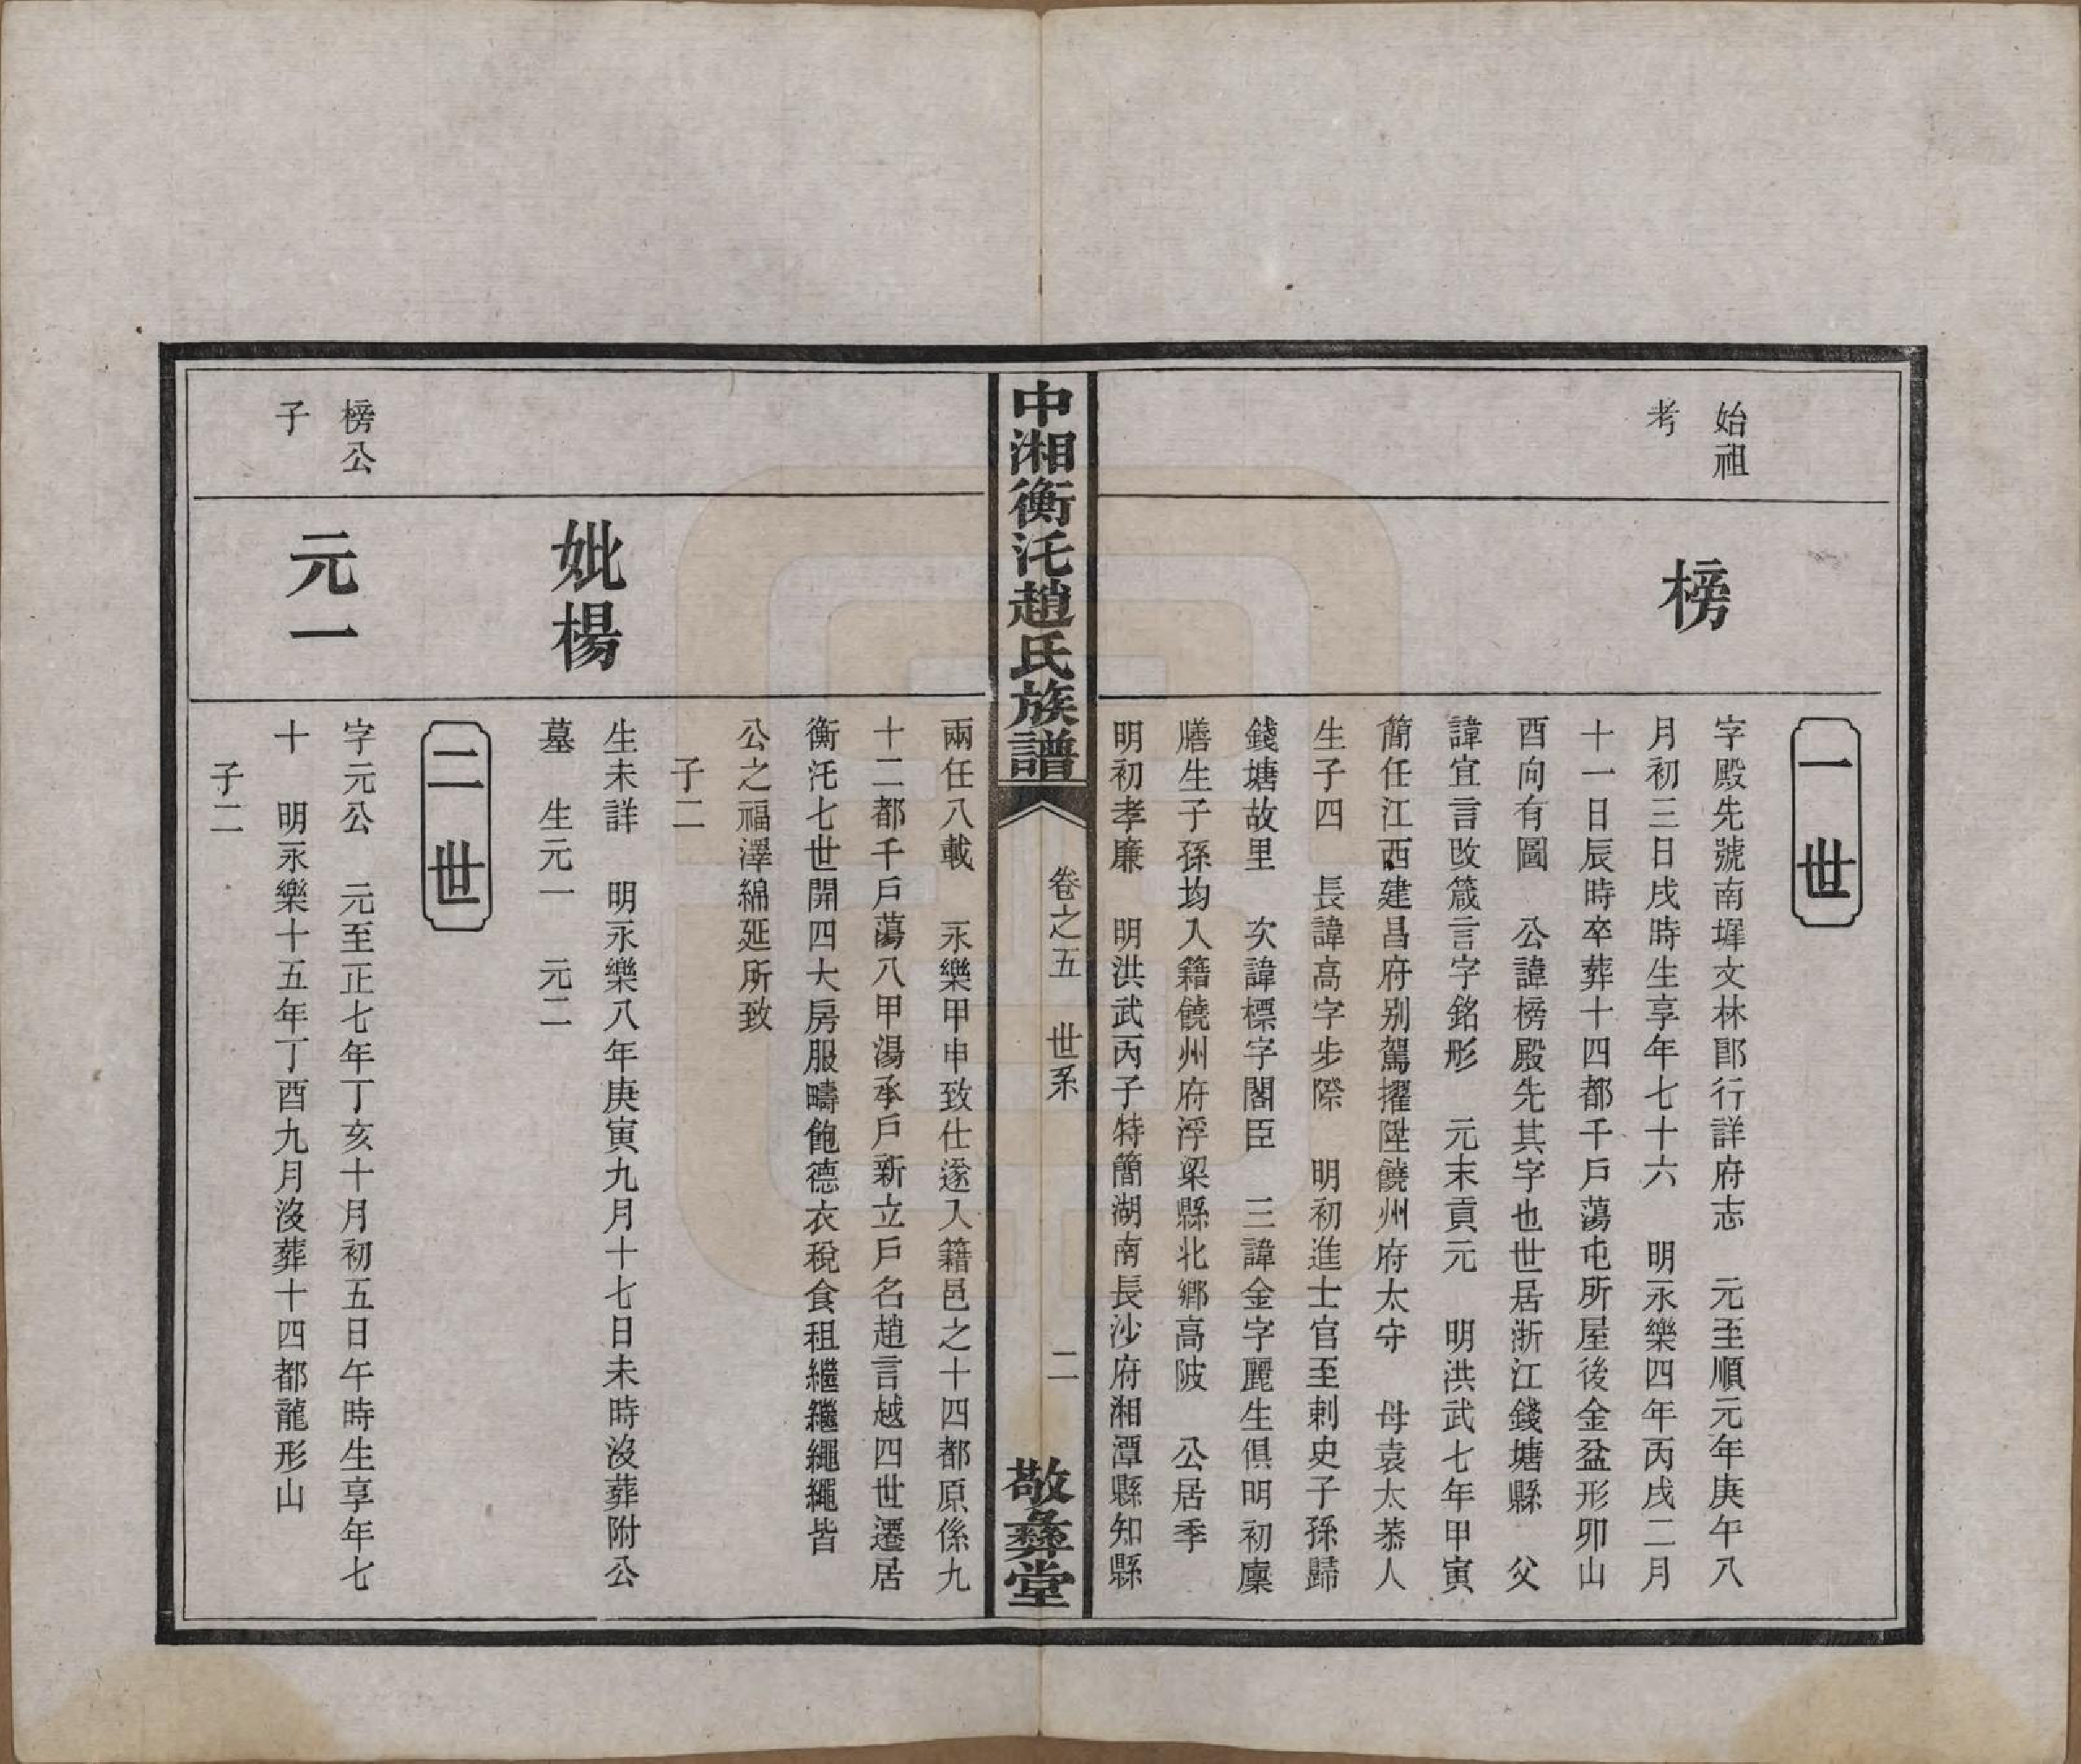 一世
始祖
考
榜
字殿先號南墀文林郎行詳府志　元至順元年庚午八
月初三日戌時生享年七十六　明永樂四年丙戌二月
十一日辰時卒葬十四都千戶蕩屯所屋後金盆形卯山
酉向有圖　公諱榜殿先其字也世居浙江錢塘縣　父
諱宜言改箴言字銘彤　元末貢元　明洪武七年甲寅
簡任江西建昌府别駕擢陞饒州府太守　母袁太恭人
生子四　長諱高字步際　明初進士官至刺史子孫歸
錢塘故里　次諱標字閣臣　三諱金字麗生俱明初廩
膳生子孫均入籍饒州府浮梁縣北鄉高陂　公居季
明初孝廉　明洪武丙子特簡湖南長沙府湘潭縣知縣
中湘衡汑趙氏族譜
卷之五　世系
二
敬彝堂
兩任八載　永樂甲申致仕遂入籍邑之十四都原係九
十二都千戶蕩八甲湯承戶新立戶名趙言越四世遷居
衡汑七世開四大房服疇飽德衣稅食租繼繼繩繩皆
公之福澤綿延所致
子二
妣楊
生未詳　明永樂八年庚寅九月十七日未時沒葬附公
墓　生元一　元二
二世
榜公
子
元一
字元公　元至正七年丁亥十月初五日午時生享年七
十　明永樂十五年丁酉九月沒葬十四都龍形山
子二